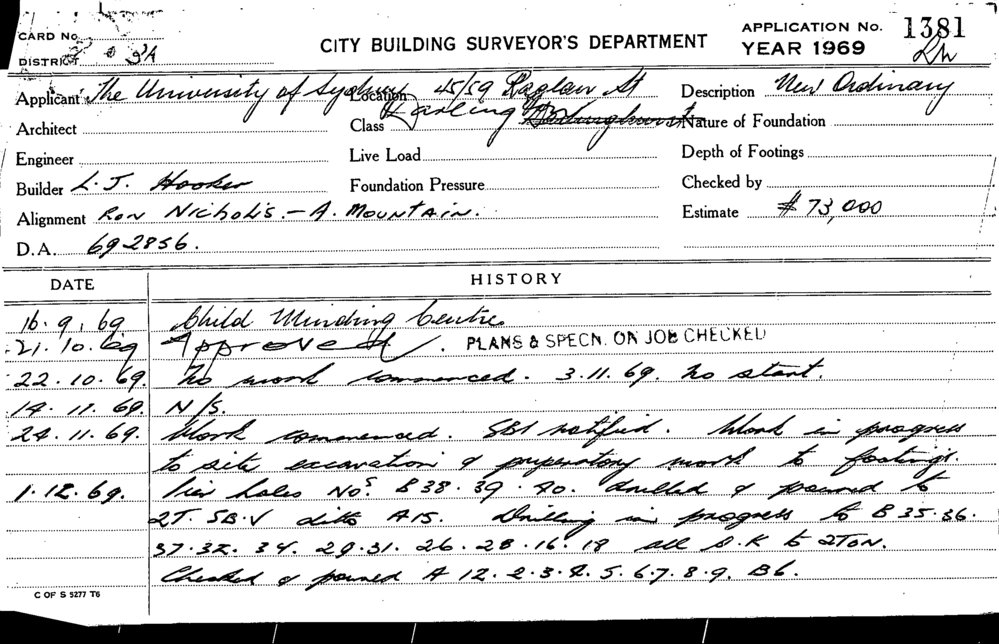 CARD No.
CITY BUILDING SURVEYOR'S DEPARTMENT
APPLICATION No. 1381
YEAR 1969
DISTRICT 3A
Applicant The University of Sydney Location 45/59 Raglan St Description New Ordinary
Darling
Architect Class Nature of Foundation
Engineer Live Load Depth of Footings
Builder L. J. Hooker Foundation Pressure Checked by
Alignment Ron Nicholls. - A. Mountain. Estimate $73,000
D.A. 692856.
DATE HISTORY
16.9.69 Child Minding Centre
21.10.69 Approved. PLANS & SPECN. ON JOB CHECKED
22.10.69. No work commenced. 3.11.69. No start.
14.11.69. N/S.
24.11.69. Work commenced. SBI notified. Work in progress
to site excavation & preperatory work to footings.
1.12.69. Pier holes Nos. B38.39.40. drilled & poured to
2T. SB.V ditto A15. Drilling in progress to B35.36.
37.32. 34. 29.31. 26. 28.16.18 all O.K to 2TON.
Checked & poured A 12.2.3.4.5.6.7.8.9. B6.
C OF S 5277 T6